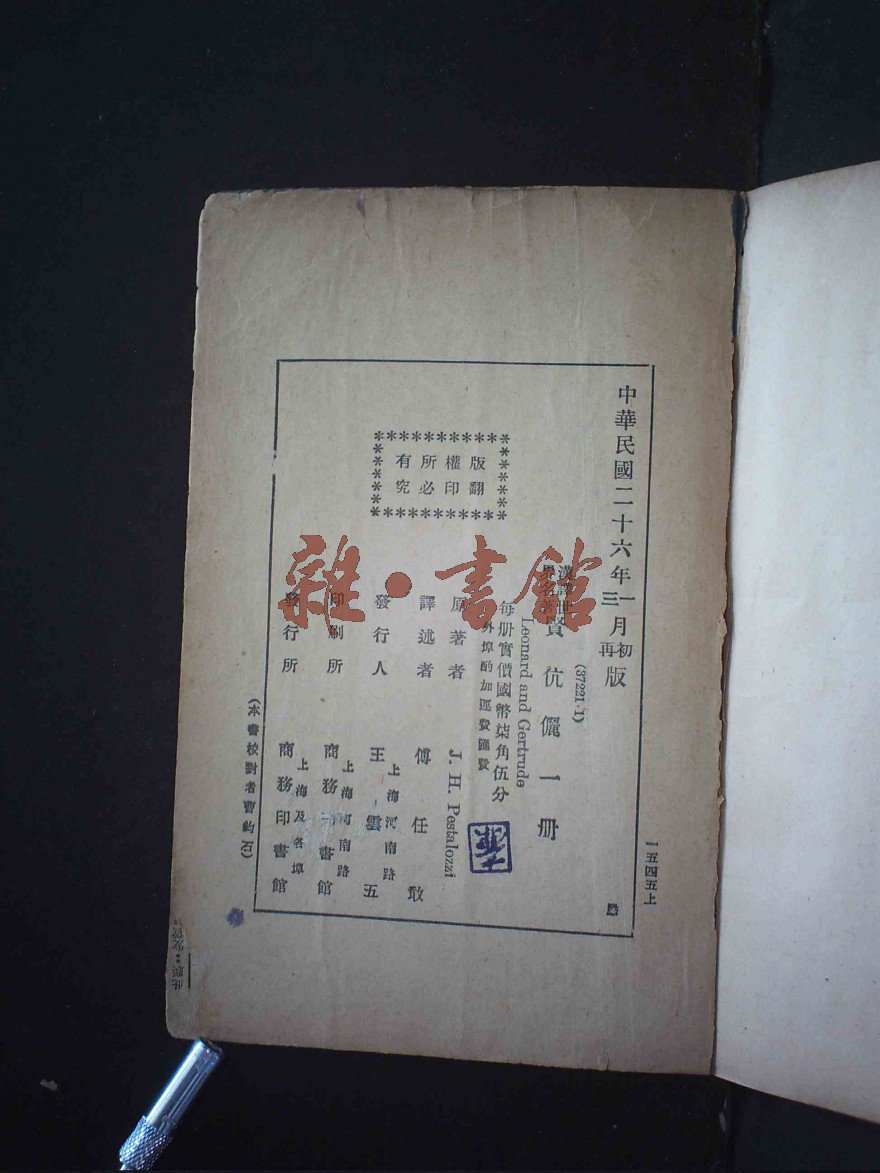 中華民國二十六年一月初版
三再
一五四五上
漢譯世界名著
賢伉儷一册
(37221·1)
Leonard and Gertrude
每册實價國幣柒角伍分
外埠酌加運費匯費
版權所有
翻印必究
原著者 J. H. Pestalozzi
譯述者 傅任敢
發行人 王雲五
上海河南路
印刷所 商務印書館
上海河南路
發行所 商務印書館
上海及各埠
(本書校對者曹鈞石)
雜·書館